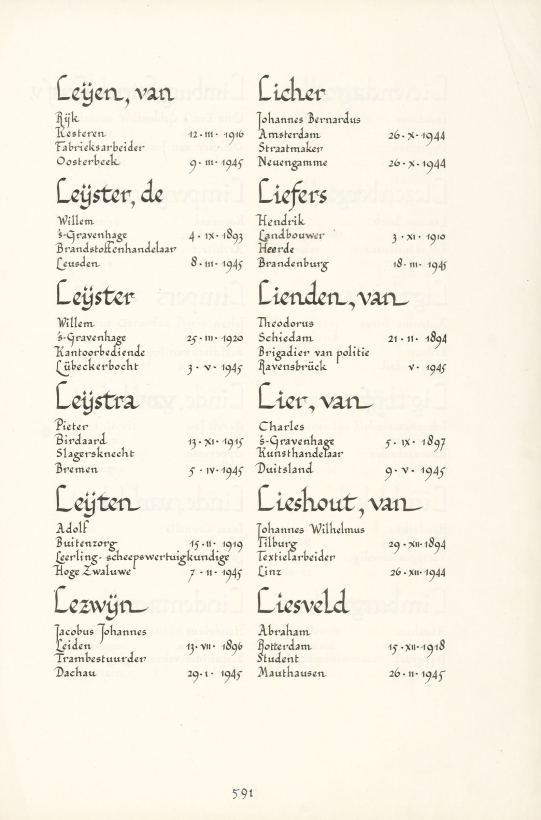 Leijen, van
Rijk
Kesteren 12 · III · 1916
Fabrieksarbeider
Oosterbeek 9 · III · 1945
Leijster, de
Willem
's-Gravenhage 4 · IX · 1893
Brandstoffenhandelaar
Leusden 8 · III · 1945
Leijster
Willem
's-Gravenhage 25 · III · 1920
Kantoorbediende
Lübeckerbocht 3 · V · 1945
Leijstra
Pieter
Birdaard 13 · XI · 1915
Slagersknecht
Bremen 5 · IV · 1945
Leijten
Adolf
Buitenzorg 15 · II · 1919
Leerling-scheepswertuigkundige
Hoge Zwaluwe 7 · II · 1945
Lezwijn
Jacobus Johannes
Leiden 13 · VII · 1896
Trambestuurder
Dachau 29 · I · 1945
Licher
Johannes Bernardus
Amsterdam 26 · X · 1944
Straatmaker
Neuengamme 26 · X · 1944
Liefers
Hendrik
Landbouwer 3 · XI · 1910
Heerde
Brandenburg 18 · III · 1945
Lienden, van
Theodorus
Schiedam 21 · II · 1894
Brigadier van politie
Ravensbrück V · 1945
Lier, van
Charles
's-Gravenhage 5 · IX · 1897
Kunsthandelaar
Duitsland 9 · V · 1945
Lieshout, van
Johannes Wilhelmus
Tilburg 29 · XII · 1894
Textielarbeider
Linz 26 · XII · 1944
Liesveld
Abraham
Rotterdam 15 · XII · 1918
Student
Mauthausen 26 · II · 1945
591